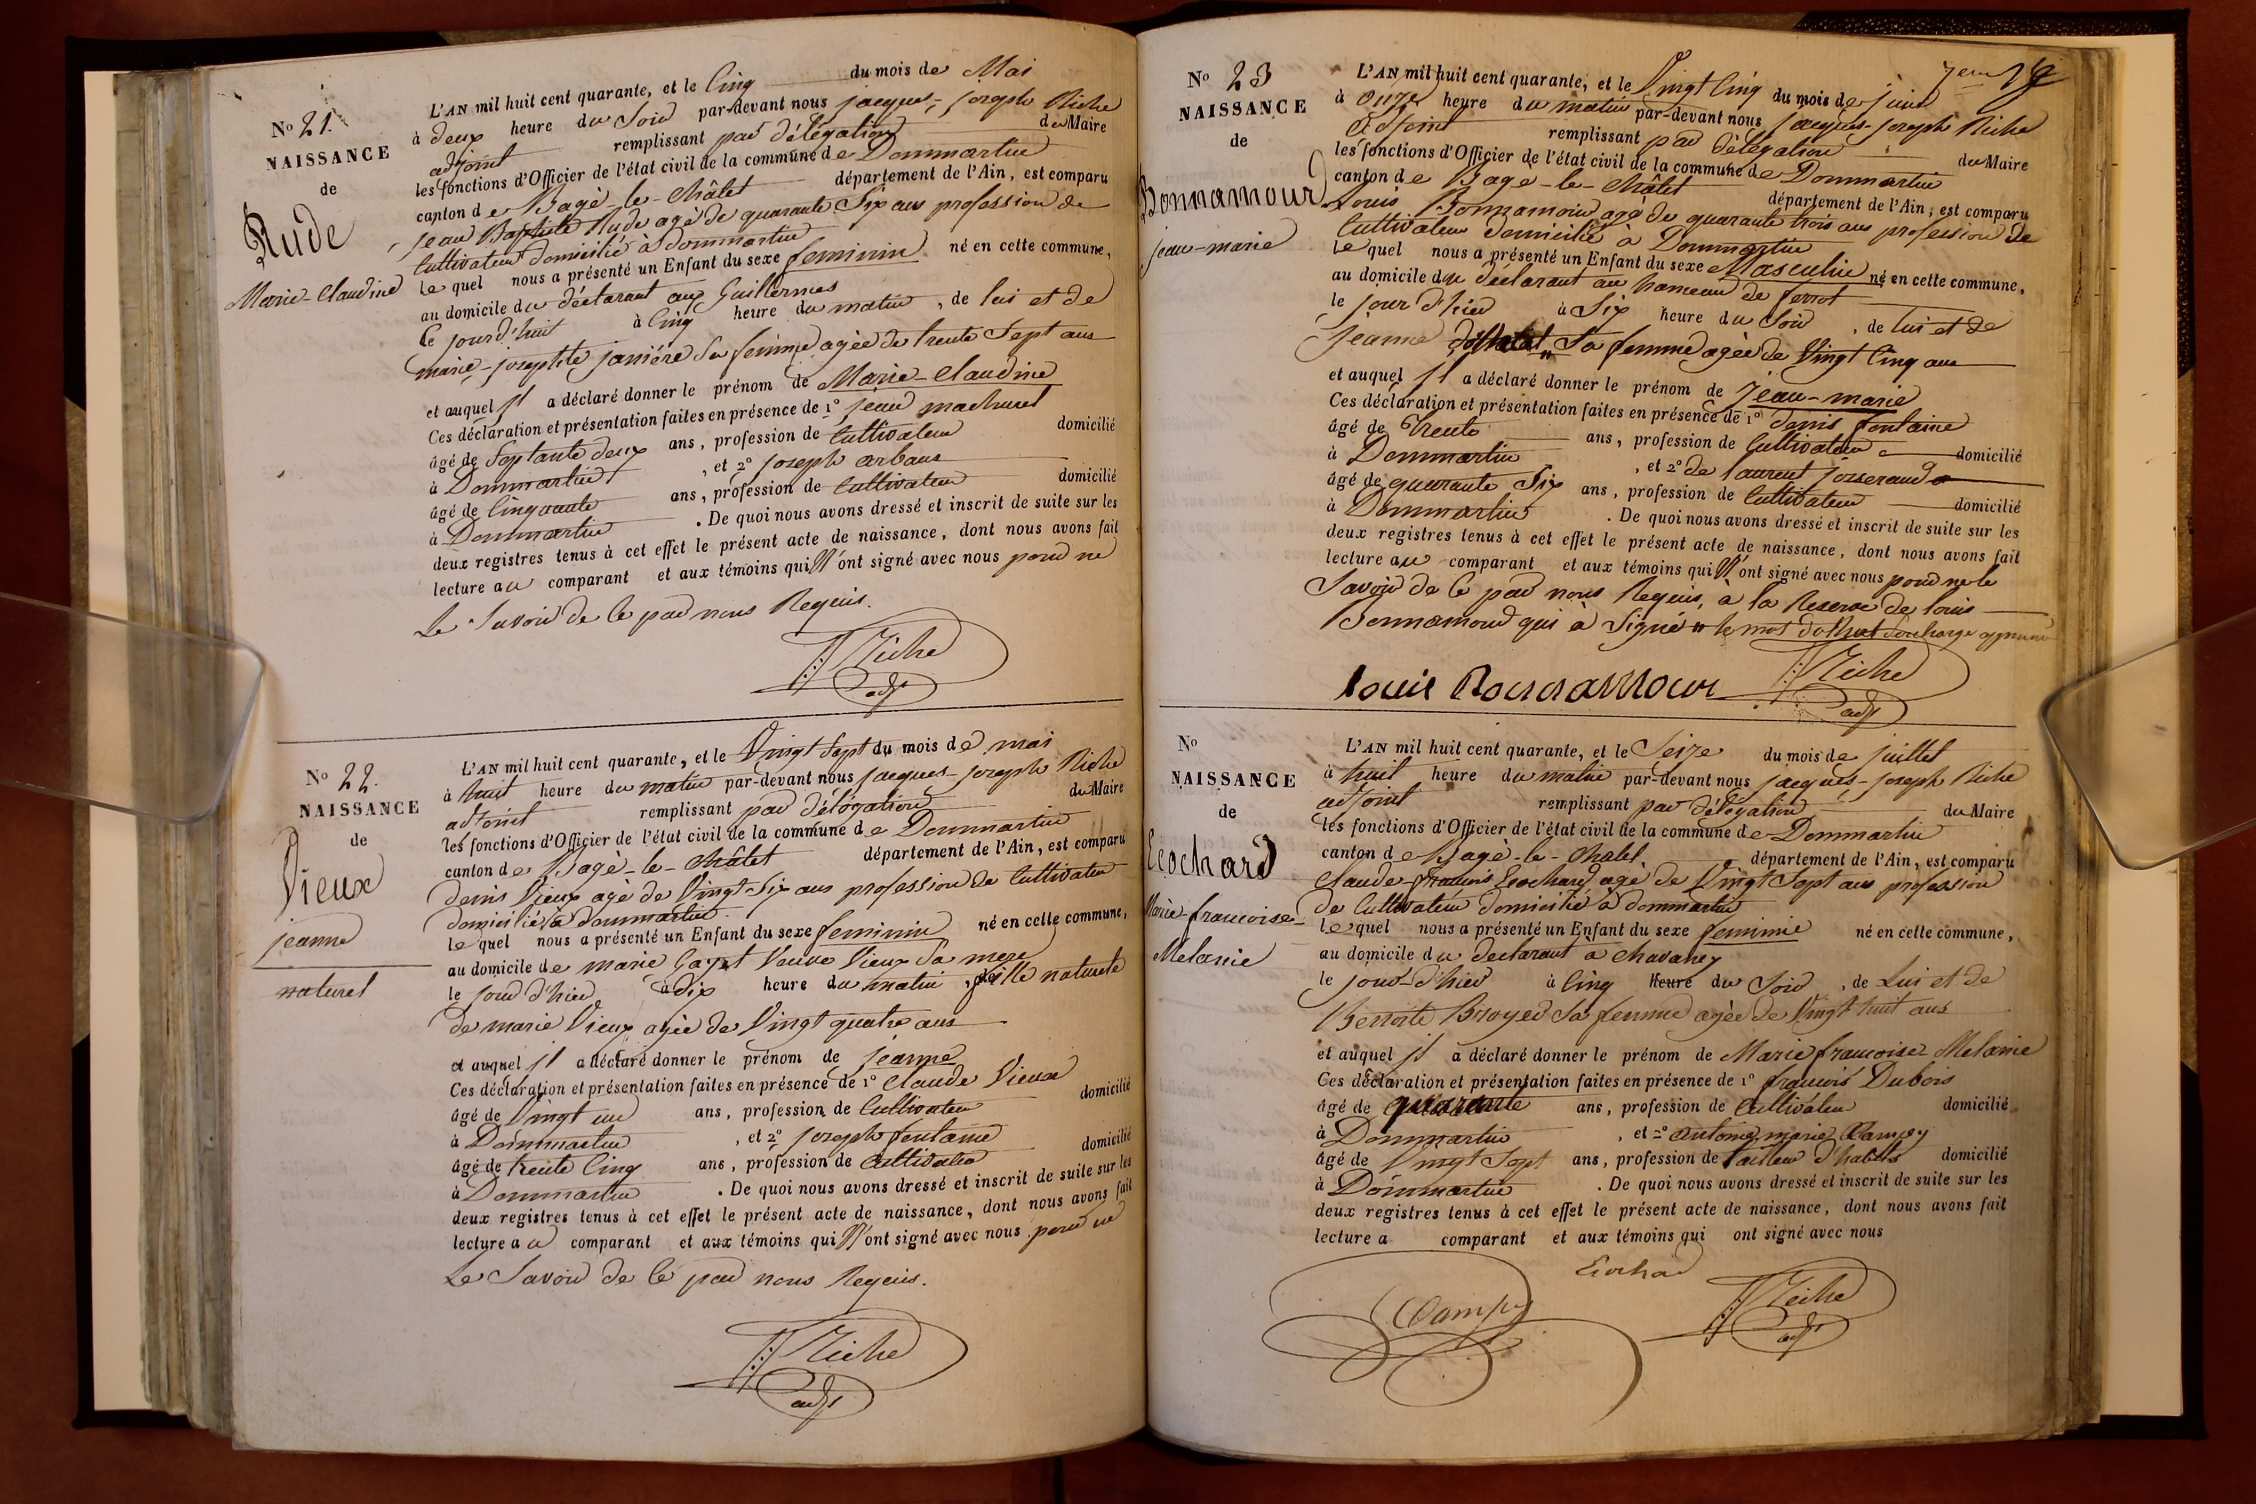 No 21.
NAISSANCE
de
Rude
Marie-Claudine
L'AN mil huit cent quarante, et le Cinq du mois de Mai
à deux heure du Soir par-devant nous jacques-joseph Riche
adjoint remplissant par délégation du Maire
les fonctions d'Officier de l'état civil de la commune de Dommartin
canton de Bagé-le-Châtel département de l'Ain, est comparu
jean Baptiste Rude agé de quarante Six ans profession de
Cultivateur domicilié à Dommartin
le quel nous a présenté un Enfant du sexe feminin né en cette commune,
au domicile du déclarant aux Guillermes
le jourd'huit à Cinq heure du matin, de lui et de
marie-josephte janiére Sa femme agée de trente Sept ans
et auquel jl a déclaré donner le prénom de Marie-Claudine
Ces déclaration et présentation faites en présence de 1° jean machuret
âgé de Soptante deux ans, profession de Cultivateur domicilié
à Dommartin, et 2° joseph arbans
âgé de Cinquante ans, profession de Cultivateur domicilié
à Dommartin. De quoi nous avons dressé et inscrit de suite sur les
deux registres tenus à cet effet le présent acte de naissance, dont nous avons fait
lecture au comparant et aux témoins qui N'ont signé avec nous pour ne
Le Savoir de Ce par nous Requis.
Riche
adjt
No 22.
NAISSANCE
de
Vieux
jeanne
naturel
L'AN mil huit cent quarante, et le Vingt Sept du mois de mai
à huit heure du matin par-devant nous jacques-joseph Riche
adjoint remplissant par délégation du Maire
les fonctions d'Officier de l'état civil de la commune de Dommartin
canton de Bagé-le-Châtel département de l'Ain, est comparu
denis Vieux agé de Vingt-Six ans profession de Cultivateur
domicilié à dommartin.
le quel nous a présenté un Enfant du sexe feminin né en cette commune,
au domicile de marie Gayet Veuve Vieux Sa mere
le jour d'hier à dix heure du matin, fille naturele
de marie Vieux agée de Vingt quatre ans
et auquel jl a déclaré donner le prénom de jeanne
Ces déclaration et présentation faites en présence de 1° Claude Vieux
âgé de Vingt un ans, profession de Cultivateur domicilié
à Dommartin, et 2° joseph fontaine
âgé de trente Cinq ans, profession de Cultivateur domicilié
à Dommartin. De quoi nous avons dressé et inscrit de suite sur les
deux registres tenus à cet effet le présent acte de naissance, dont nous avons fait
lecture au comparant et aux témoins qui N'ont signé avec nous pour ne
Le Savoir de Ce par nous Requis.
Riche
adjt
No 23
NAISSANCE
de
Bonnamour
jean-marie
L'AN mil huit cent quarante, et le Vingt Cinq du mois de juin
à onze heure du matin par-devant nous jacques-joseph Riche
adjoint remplissant par délégation du Maire
les fonctions d'Officier de l'état civil de la commune de Dommartin
canton de Bagé-le-Châtel département de l'Ain, est comparu
Louis Bonnamour agé de quarante trois ans profession de
Cultivateur domicilié à Dommartin
le quel nous a présenté un Enfant du sexe Masculin né en cette commune,
au domicile du déclarant au hameau de ferrot
le jour d'hier à Six heure du Soir, de lui et de
jeanne Sa femme agée de Vingt Cinq ans
et auquel jl a déclaré donner le prénom de jean-marie
Ces déclaration et présentation faites en présence de 1° denis fontaine
âgé de Trente ans, profession de Cultivateur domicilié
à Dommartin, et 2° de laurent josserand
âgé de quarante Six ans, profession de Cultivateur domicilié
à Dommartin. De quoi nous avons dressé et inscrit de suite sur les
deux registres tenus à cet effet le présent acte de naissance, dont nous avons fait
lecture au comparant et aux témoins qui N'ont signé avec nous pour ne le
Savoir de Ce par nous Requis, à la Reserve de louis
Bonnamour qui à Signé le mot Surcharge approuvé
Louis Bonnamour
Riche
adjt
No
NAISSANCE
de
Ecochard
Marie-francoise-
Melanie
L'AN mil huit cent quarante, et le Seize du mois de juillet
à huit heure du matin par-devant nous jacques-joseph Riche
adjoint remplissant par délégation du Maire
les fonctions d'Officier de l'état civil de la commune de Dommartin
canton de Bagé-le-Chatel département de l'Ain, est comparu
Claude-francois Ecochard agé de Vingt Sept ans profession
de Cultivateur domicilié à dommartin
le quel nous a présenté un Enfant du sexe feminin né en cette commune,
au domicile du declarant à Chavaney
le jour-d'hier à Cinq heure du Soir, de Lui et de
Benoite Broyer Sa femme agée de Vingt huit ans
et auquel jl a déclaré donner le prénom de Marie francoise Melanie
Ces déclaration et présentation faites en présence de 1° francois Dubois
âgé de quarante ans, profession de Cultivateur domicilié
à Dommartin, et 2° antoine marie Campy
âgé de Vingt Sept ans, profession de tailleur d'habits domicilié
à Dommartin. De quoi nous avons dressé et inscrit de suite sur les
deux registres tenus à cet effet le présent acte de naissance, dont nous avons fait
lecture a comparant et aux témoins qui ont signé avec nous
Ecochar
Campy
Riche
adjt